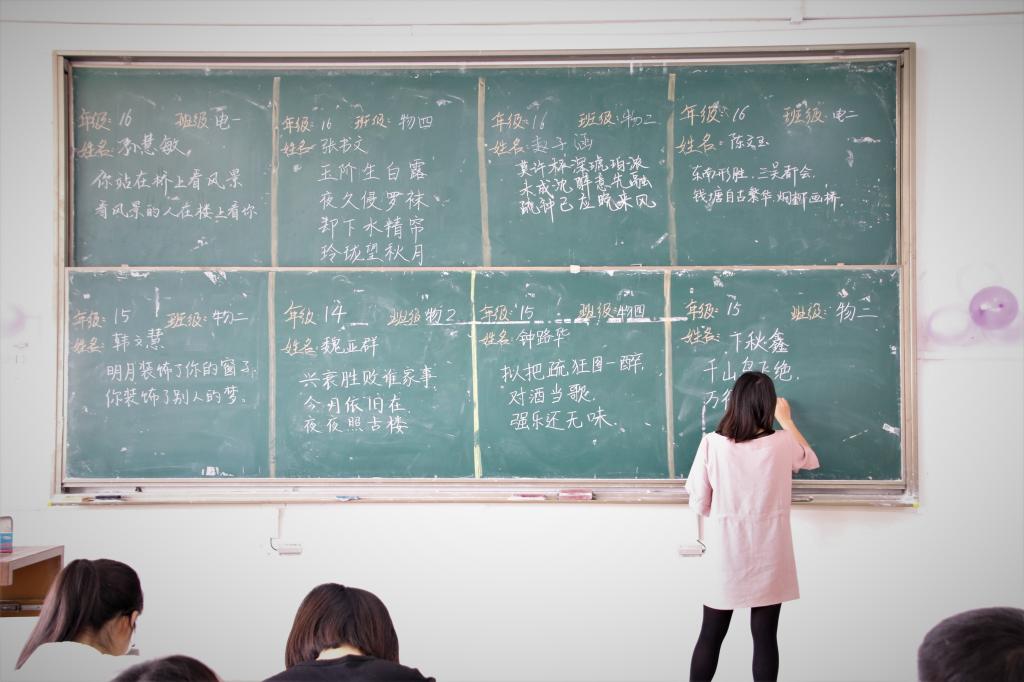 年级: 16 班级: 电一
姓名: 孙慧敏
你站在桥上看风景
看风景的人在楼上看你
年级: 16 班级: 物四
姓名: 张书文
玉阶生白露
夜久侵罗袜
却下水精帘
玲珑望秋月
年级: 16 班级: 物二
姓名: 赵子涵
莫许杯深琥珀浓
未成沈醉意先融
疏钟已应晚来风
年级: 16 班级: 电二
姓名: 陈文玉
东南形胜,三吴都会.
钱塘自古繁华.烟断画桥.
年级: 15 班级: 物二
姓名: 韩文慧
明月装饰了你的窗子.
你装饰了别人的梦.
年级 14 班级 物2
姓名: 魏亚群
兴衰胜败谁家事
今月依旧在
夜夜照古楼
年级: 15 班级: 物四
姓名: 钟路华
拟把疏狂图一醉.
对酒当歌.
强乐还无味.
年级: 15 班级: 物二
姓名: 卞秋鑫
千山鸟飞绝.
万径